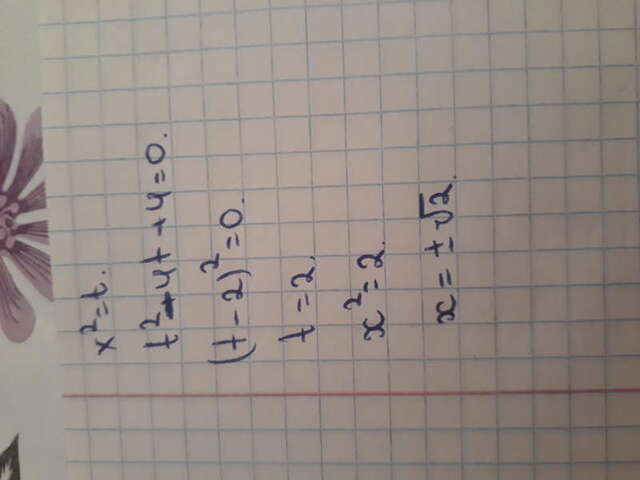 x² = t.
t² - 4t + 4 = 0.
(t - 2)² = 0.
t = 2.
x² = 2.
x = ± √2.